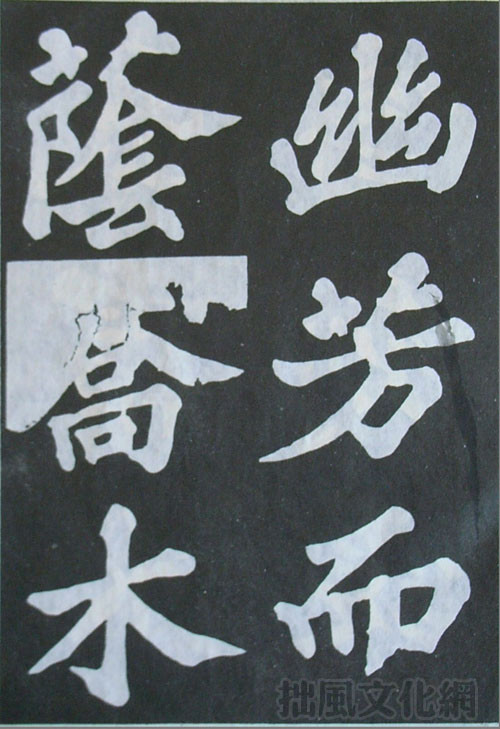 幽芳而
蔭喬木
拙風文化網